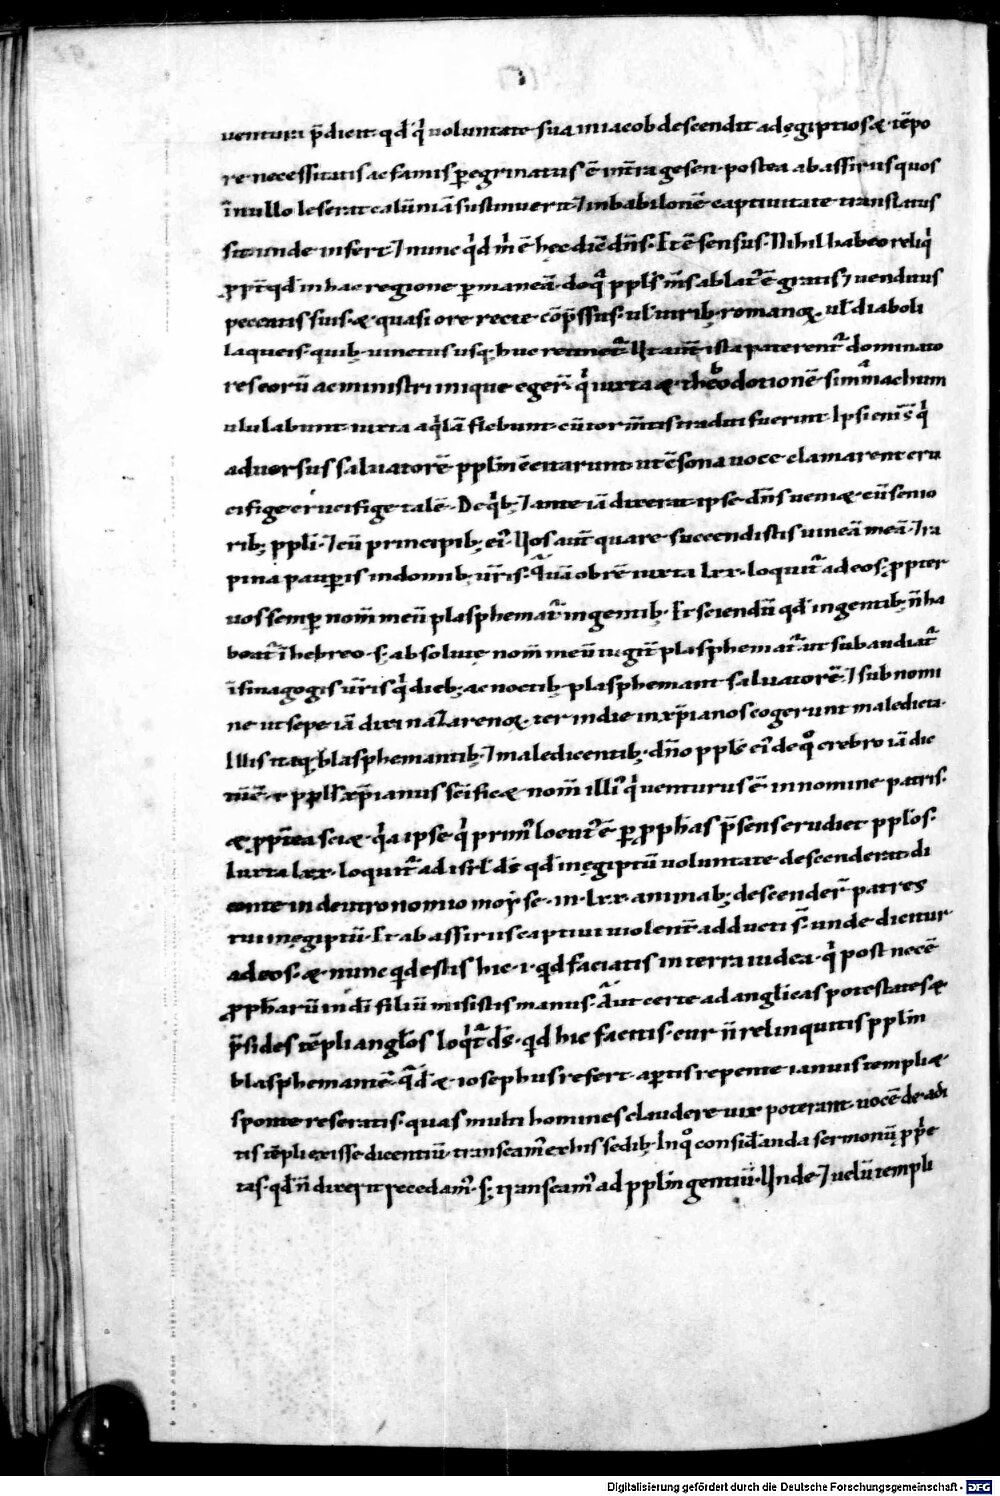 venturi p̄dicit· qđ q̇ voluntate sua in iacob descendit ad egiptios· & tēpo
re necessitatis ac famis ꝑegrinatus ē in t̄ra gesen· postea ab assiriis quos
ī nullo leserat calūniā sustinuerit· ⁊ in babilonē captivitate translatus
sit· unde infert· ⁊ nunc qͥd m̄ ē hec diē dn̄s· Et ē sensus· Nihil habeo reliqͥ
ꝓpt̄ qđ in hac regione ꝑmaneā· do qͣ ppl̄s m̄s ablatᵉ ē gratis ⁊ venditus
peccatis suis· & quasi ore recte cōp̄ssus· ul̄ virib; romanoꝝ· ul̄ diaboli
laqueis· quib; vinctus usq; huc retinetᷣ Ut aut̄ ista paterentᷣ dominato
res eorū ac ministri inique egerᷣ· qͥ iuxta & theodotionē· simmachum
ululabunt· iuxta aqͥlā flebunt· cū torm̄tis traditi fuerint· Ipsi eni s̄ qͥ
adversus salvatorē pplm̄ ēcitarunt· ut ēsona voce clamarent cru
cifige crucifige talē· De qͥb; ⁊ ante iā dixerat· ipse dn̄s veni& cū senio
rib; ppli· ⁊ cū principib; eiᷤ· Uos aut̄ quare succendistis vineā meā· ⁊ ra
pina pauꝑis in domib; vr̄is· Quā obrē iuxta lxx· loquitᷣ ad eos· ꝓpter
vos semꝑ nom̄ meū plasphematᷣ in gentib; Et sciendū qđ in gentib; n̄ ha
beatᷣ ī hebreo· s; absolute nom̄ meū iugit̄ plasphematᷣ· ut subaudiatᷣ
ī sinagogis vr̄is qͥ dieb; ac noctib; plasphemant salvatorē· ⁊ sub nomi
ne ut sepe iā dixi nazarenoꝝ· ter in die in xp̄ianos cogerunt maledicta·
Illis itaq; blasphemantib; ⁊ maledicentib; dn̄o ppls̄ eiᷤ de qͦ crebro iā dic
tū ē· & ppls̄ xp̄ianus scific& nom̄ illiᷤ qͥ venturus ē in nomine patris·
& ꝓpt̄ea sci&· qͥa ipse qͥ primᷤ locutᷤ ē ꝑ ꝓph̄as p̄sens erudiet ppl̄os·
Iuxta lxx· loquitᷣ ad isrl̄ ds̄ qđ in egiptū voluntate descenderat· di
cente in deutronomio moẏse· in· lxx· animab; descenderᷣ patres
tui in egiptū· Et ab assiriis captivi violent̄ adducti s̄· unde dicitur
ad eos· & nunc qͥd estis hic· i· qͥd faciatis in terra iudea· qͥ post necē
ꝓph̄arū in dī filiū misistis manus· Aut certe ad anglicas potestates &
p̄sides tēpli angl̄os loqͥtᷣ ds̄· qͥd hic facitis· cur n̄ relinquitis pplm̄
blasphemantē· qͣd & iosephus refert· aꝑtis repente ianuis templi &
sponte reseratis· quas multi homines claudere vix poterant· vocē de adi
tis tēpli exisse dicentiū· transeamᷤ ex his sedib; In qͦ consideranda sermonū ꝓpͥe
tas· qđ n̄ dixerit recedamᷤ· s; transeamᷤ ad pplm̄ gentiū· Unde ⁊ velū templi
Digitalisierung gefördert durch die Deutsche Forschungsgemeinschaft - DFG